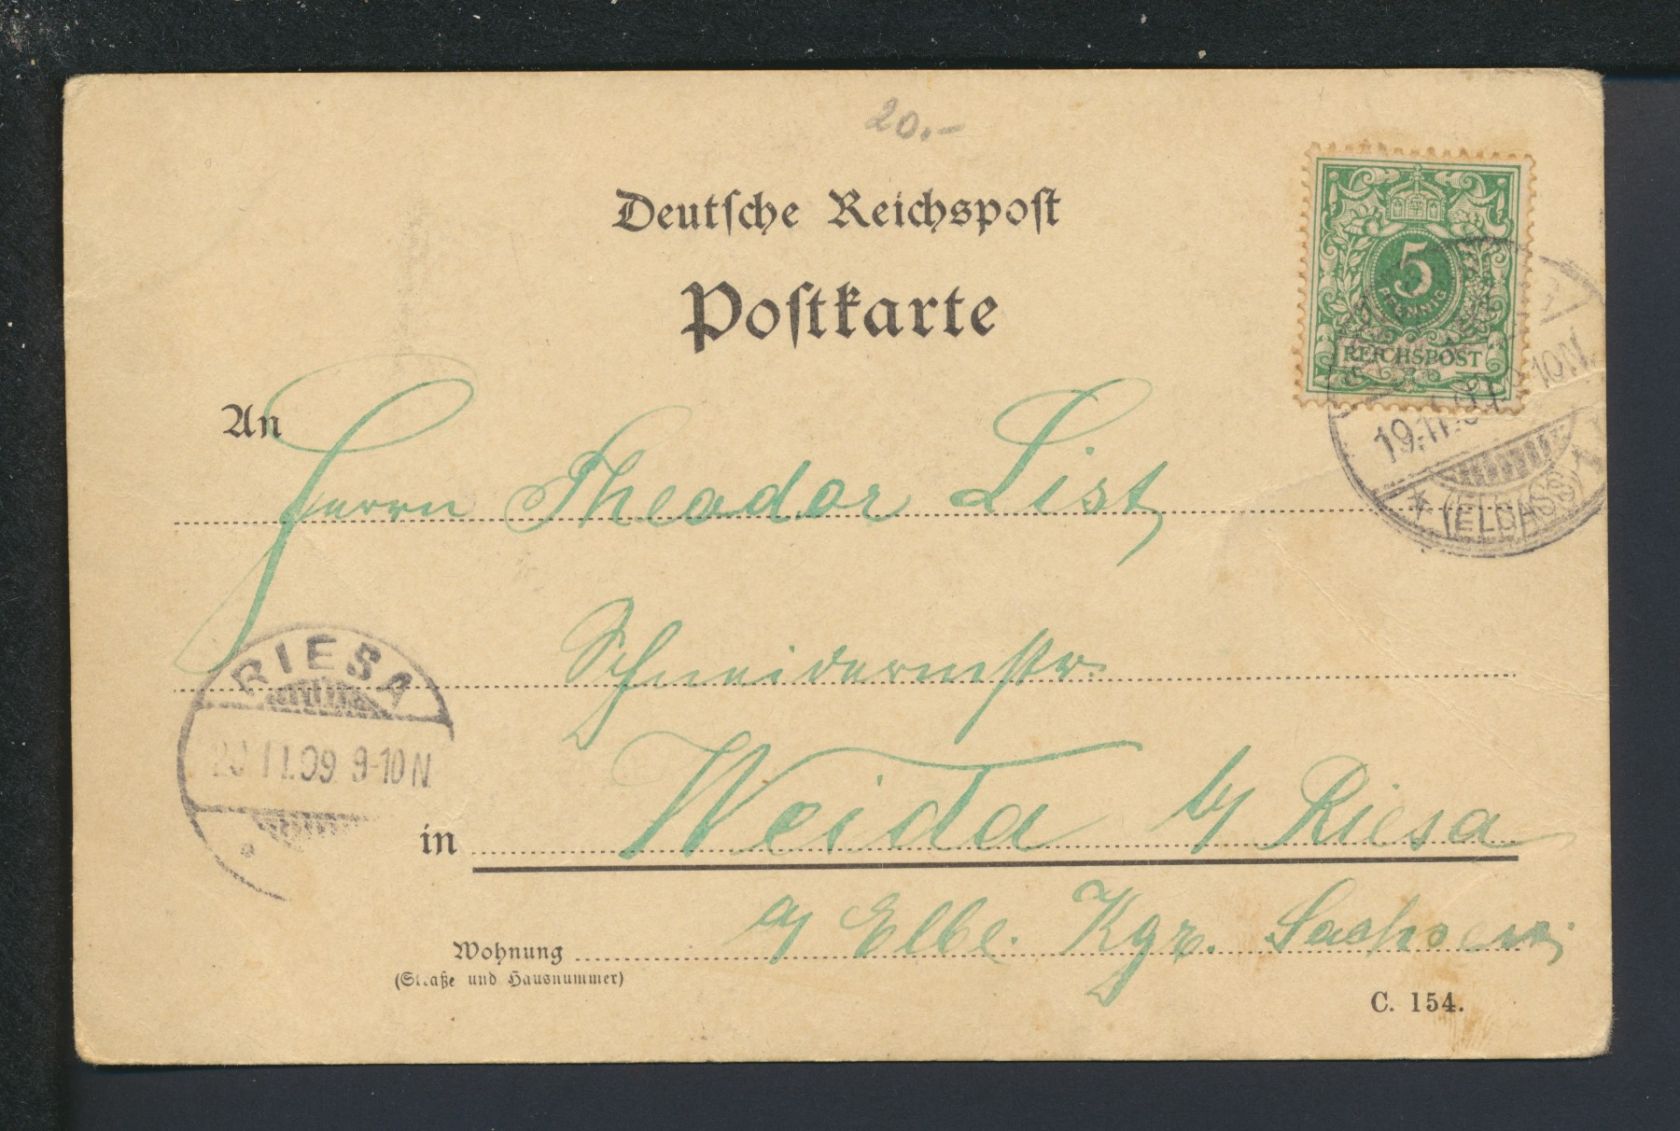 20.-
Deutsche Reichspost
Postkarte
5
PFENNIG
REICHSPOST
10N
19.11.
(ELSASS)
An
Herrn Theodor List,
Schneidermstr.
RIESA
11.09. 9-10N
in Weida b/ Riesa
a/ Elbe. Kgr. Sachsen;
Wohnung
(Straße und Hausnummer)
C. 154.